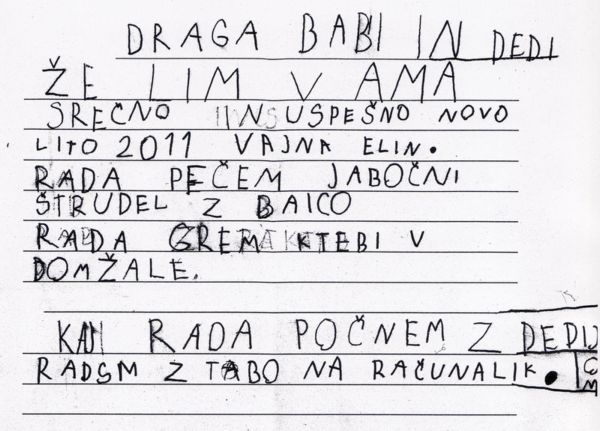 DRAGA BABI IN DEDI
ŽE LIM V AMA
SREČNO IN USPEŠNO NOVO
LITO 2011 VAJNA ELIN.
RADA PEČEM JABOČNI
ŠTRUDEL Z BAICO
RADA GREM KTEBI V
DOMŽALE.
RADA POČNEM Z DEDIJEM
RADSM Z TABO NA RAČUNALIK.